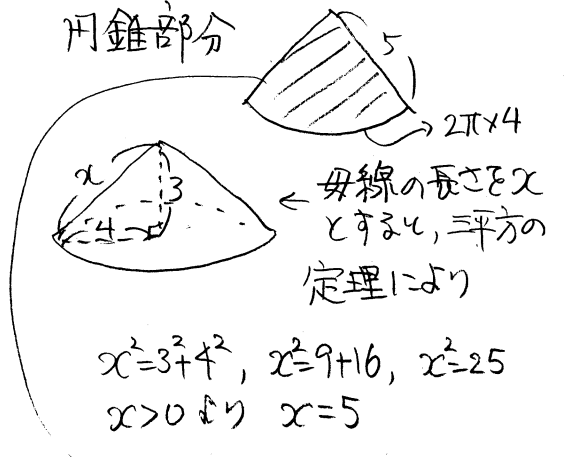 円錐部分
5
2π×4
x
3
4
← 母線の長さをx
とすると,三平方の
定理により
x²=3²+4², x²=9+16, x²=25
x>0より x=5